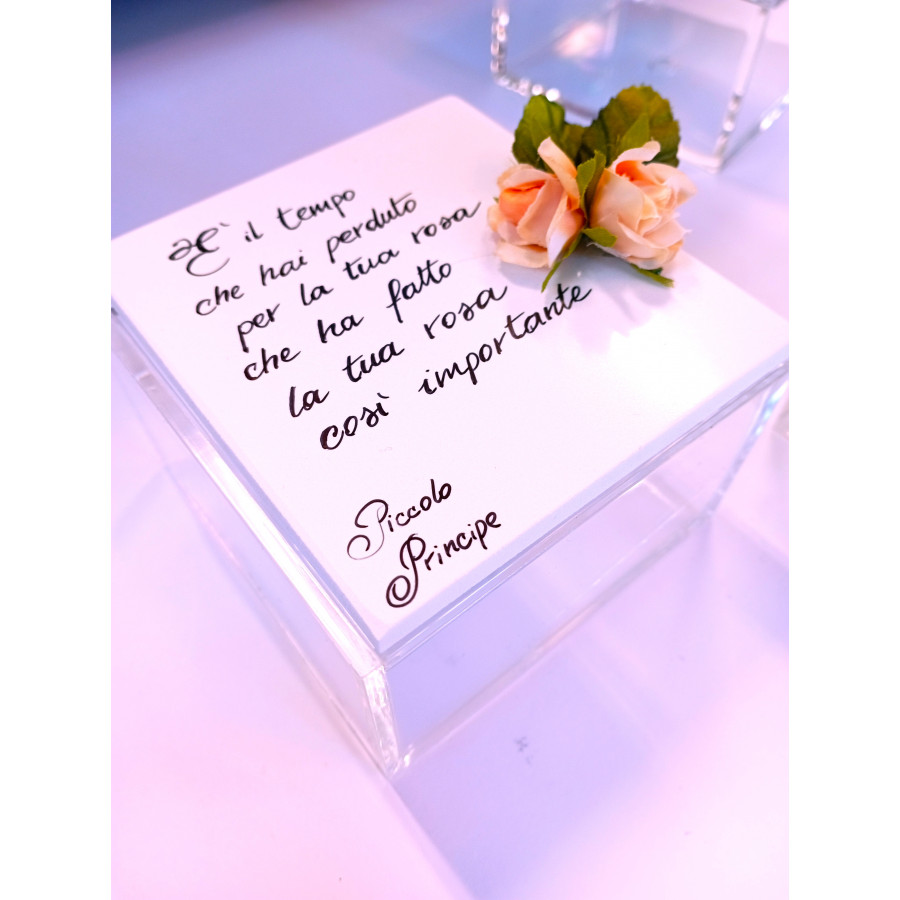 E' il tempo
che hai perduto
per la tua rosa
che ha fatto
la tua rosa
così importante
Piccolo
Principe